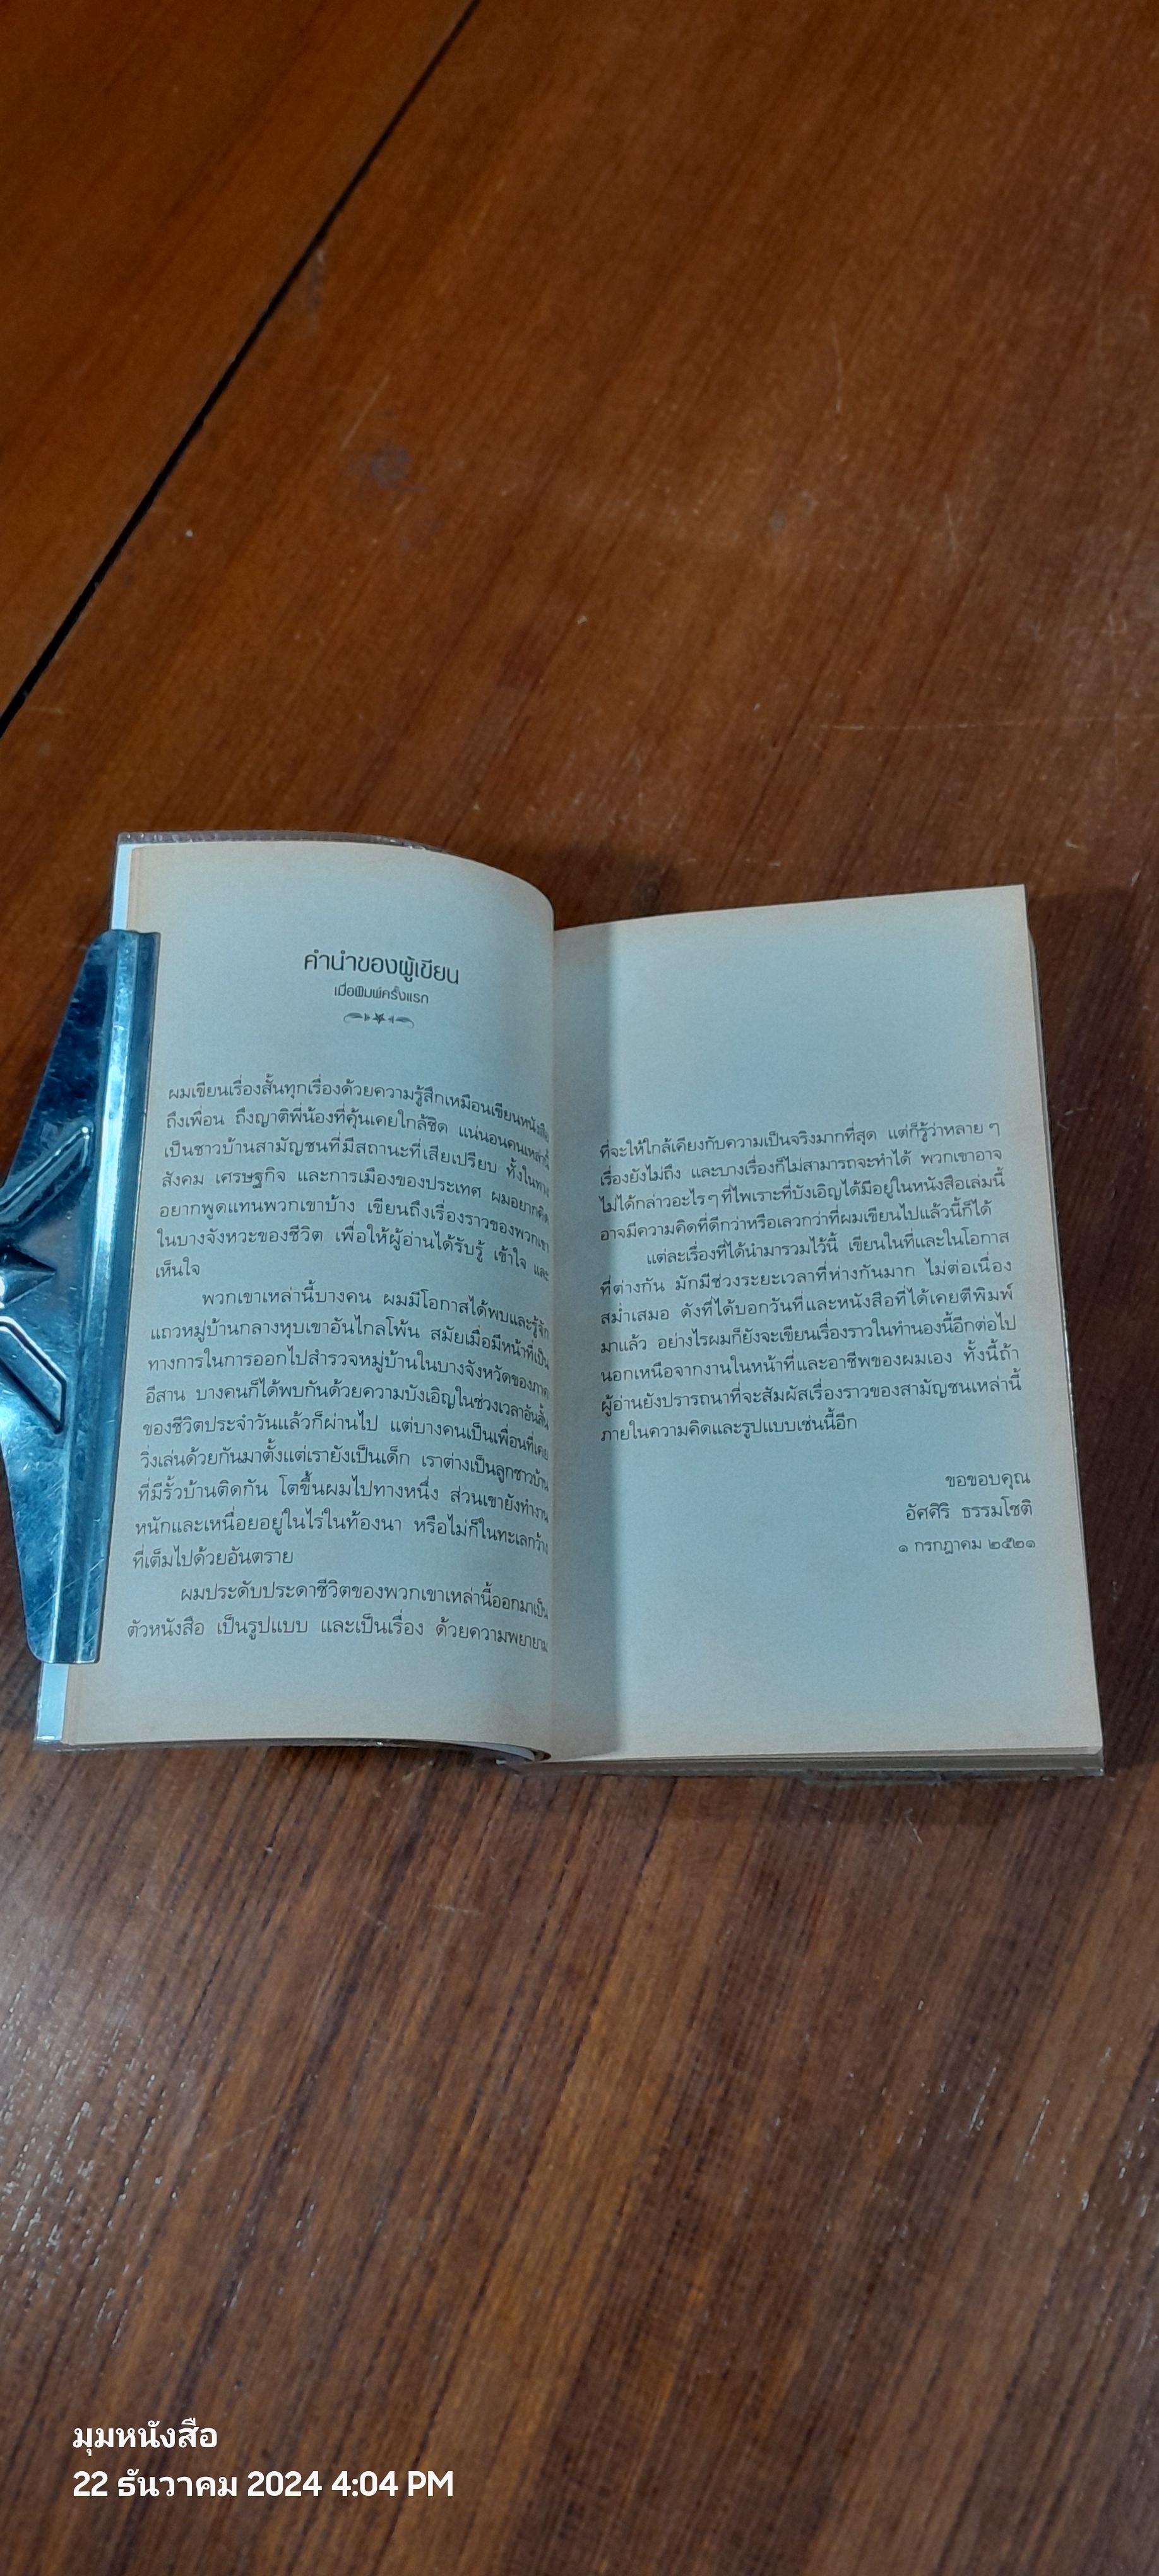 คำนำของผู้เขียน
เมื่อพิมพ์ครั้งแรก
ผมเขียนเรื่องสั้นทุกเรื่องด้วยความรู้สึกเหมือนเขียนหนังสือ
ถึงเพื่อน ถึงญาติพี่น้องที่คุ้นเคยใกล้ชิด แน่นอนคนเหล่านี้
เป็นชาวบ้านสามัญชนที่มีสถานะที่เสียเปรียบ ทั้งในทาง
สังคม เศรษฐกิจ และการเมืองของประเทศ ผมอยากคิด
อยากพูดแทนพวกเขาบ้าง เขียนถึงเรื่องราวของพวกเขา
ในบางจังหวะของชีวิต เพื่อให้ผู้อ่านได้รับรู้ เข้าใจ และ
เห็นใจ
พวกเขาเหล่านี้บางคน ผมมีโอกาสได้พบและรู้จัก
แถวหมู่บ้านกลางหุบเขาอันไกลโพ้น สมัยเมื่อมีหน้าที่เป็น
ทางการในการออกไปสำรวจหมู่บ้านในบางจังหวัดของภาค
อีสาน บางคนก็ได้พบกันด้วยความบังเอิญในช่วงเวลาอันสั้น
ของชีวิตประจำวันแล้วก็ผ่านไป แต่บางคนเป็นเพื่อนที่เคย
วิ่งเล่นด้วยกันมาตั้งแต่เรายังเป็นเด็ก เราต่างเป็นลูกชาวบ้าน
ที่มีรั้วบ้านติดกัน โตขึ้นผมไปทางหนึ่ง ส่วนเขายังทำงาน
หนักและเหนื่อยอยู่ในไร่ในท้องนา หรือไม่ก็ในทะเลกว้าง
ที่เต็มไปด้วยอันตราย
ผมประดับประดาชีวิตของพวกเขาเหล่านี้ออกมาเป็น
ตัวหนังสือ เป็นรูปแบบ และเป็นเรื่อง ด้วยความพยายาม
ที่จะให้ใกล้เคียงกับความเป็นจริงมากที่สุด แต่ก็รู้ว่าหลาย ๆ
เรื่องยังไม่ถึง และบางเรื่องก็ไม่สามารถจะทำได้ พวกเขาอาจ
ไม่ได้กล่าวอะไร ๆ ที่ไพเราะที่บังเอิญได้มีอยู่ในหนังสือเล่มนี้
อาจมีความคิดที่ดีกว่าหรือเลวกว่าที่ผมเขียนไปแล้วนี้ก็ได้
แต่ละเรื่องที่ได้นำมารวมไว้นี้ เขียนในที่และในโอกาส
ที่ต่างกัน มักมีช่วงระยะเวลาที่ห่างกันมาก ไม่ต่อเนื่อง
สม่ำเสมอ ดังที่ได้บอกวันที่และหนังสือที่ได้เคยตีพิมพ์
มาแล้ว อย่างไรผมก็ยังจะเขียนเรื่องราวในทำนองนี้อีกต่อไป
นอกเหนือจากงานในหน้าที่และอาชีพของผมเอง ทั้งนี้ถ้า
ผู้อ่านยังปรารถนาที่จะสัมผัสเรื่องราวของสามัญชนเหล่านี้
ภายในความคิดและรูปแบบเช่นนี้อีก
ขอขอบคุณ
อัศศิริ ธรรมโชติ
๑ กรกฎาคม ๒๕๒๑
มุมหนังสือ
22 ธันวาคม 2024 4:04 PM